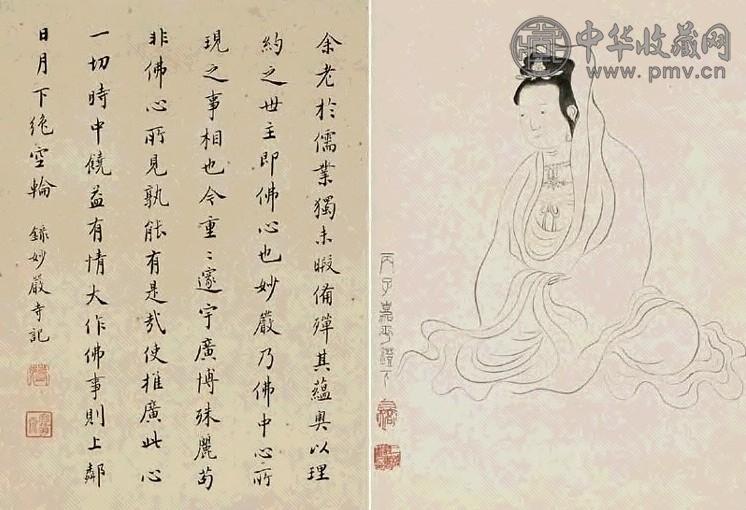 中华收藏网
www.pmv.cn
丙子嘉平燈下
余老於儒業獨未暇備殫其蘊奧以理
約之世主即佛心也妙嚴乃佛中心所
現之事相也今重〻邃宇廣博殊麗苟
非佛心所見孰能有是哉使推廣此心
一切時中饒益有情大作佛事則上鄰
日月下絶空輪 録妙嚴寺記